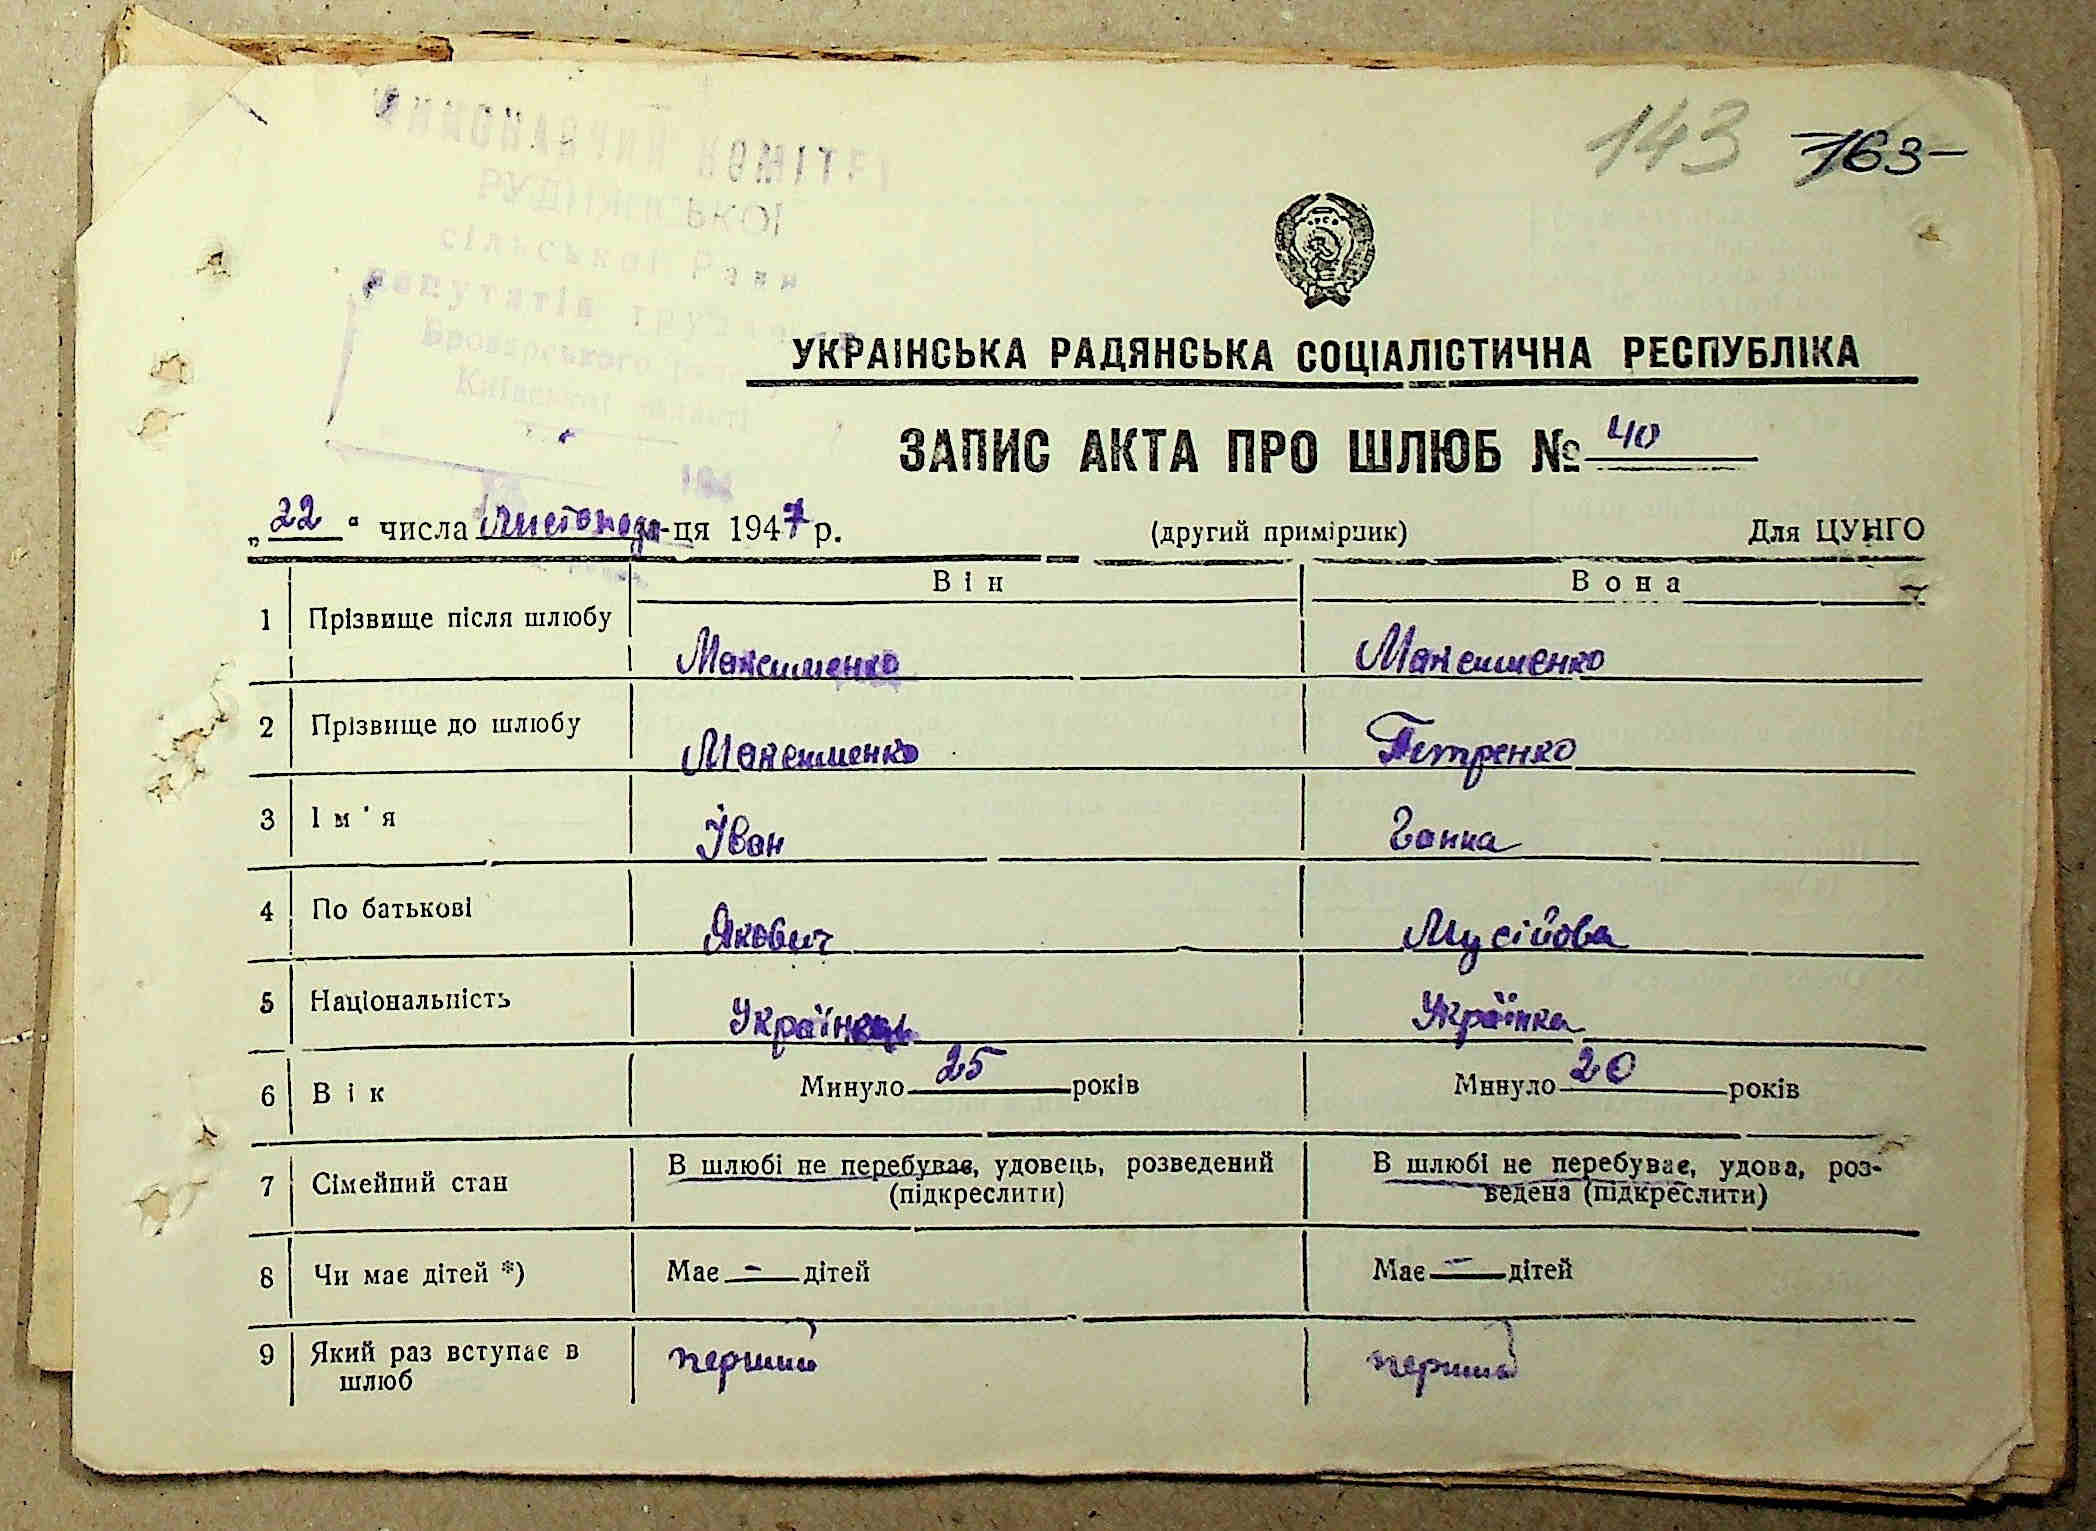 143 163
ВИКОНАВЧИЙ КОМІТЕТ
сільської Ради
депутатів
Броварського
Київської області
194
УКРАІНСЬКА РАДЯНСЬКА СОЦІАЛІСТИЧНА РЕСПУБЛІКА
ЗАПИС АКТА ПРО ШЛЮБ № 40
„22“ числа Листопада-ця 1947 р. (другий примірник) Для ЦУНГО
Він Вона
1 Прізвище після шлюбу Максименко Максименко
2 Прізвище до шлюбу Максименко Петренко
3 Ім'я Іван Ганна
4 По батькові Якович Мусійова
5 Національність Українець Українка
6 Вік Минуло 25 років Минуло 20 років
7 Сімейний стан В шлюбі не перебуває, удовець, розведений В шлюбі не перебуває, удова, роз-
(підкреслити) ведена (підкреслити)
8 Чи має дітей *) Має - дітей Має - дітей
9 Який раз вступає в перший перший
шлюб